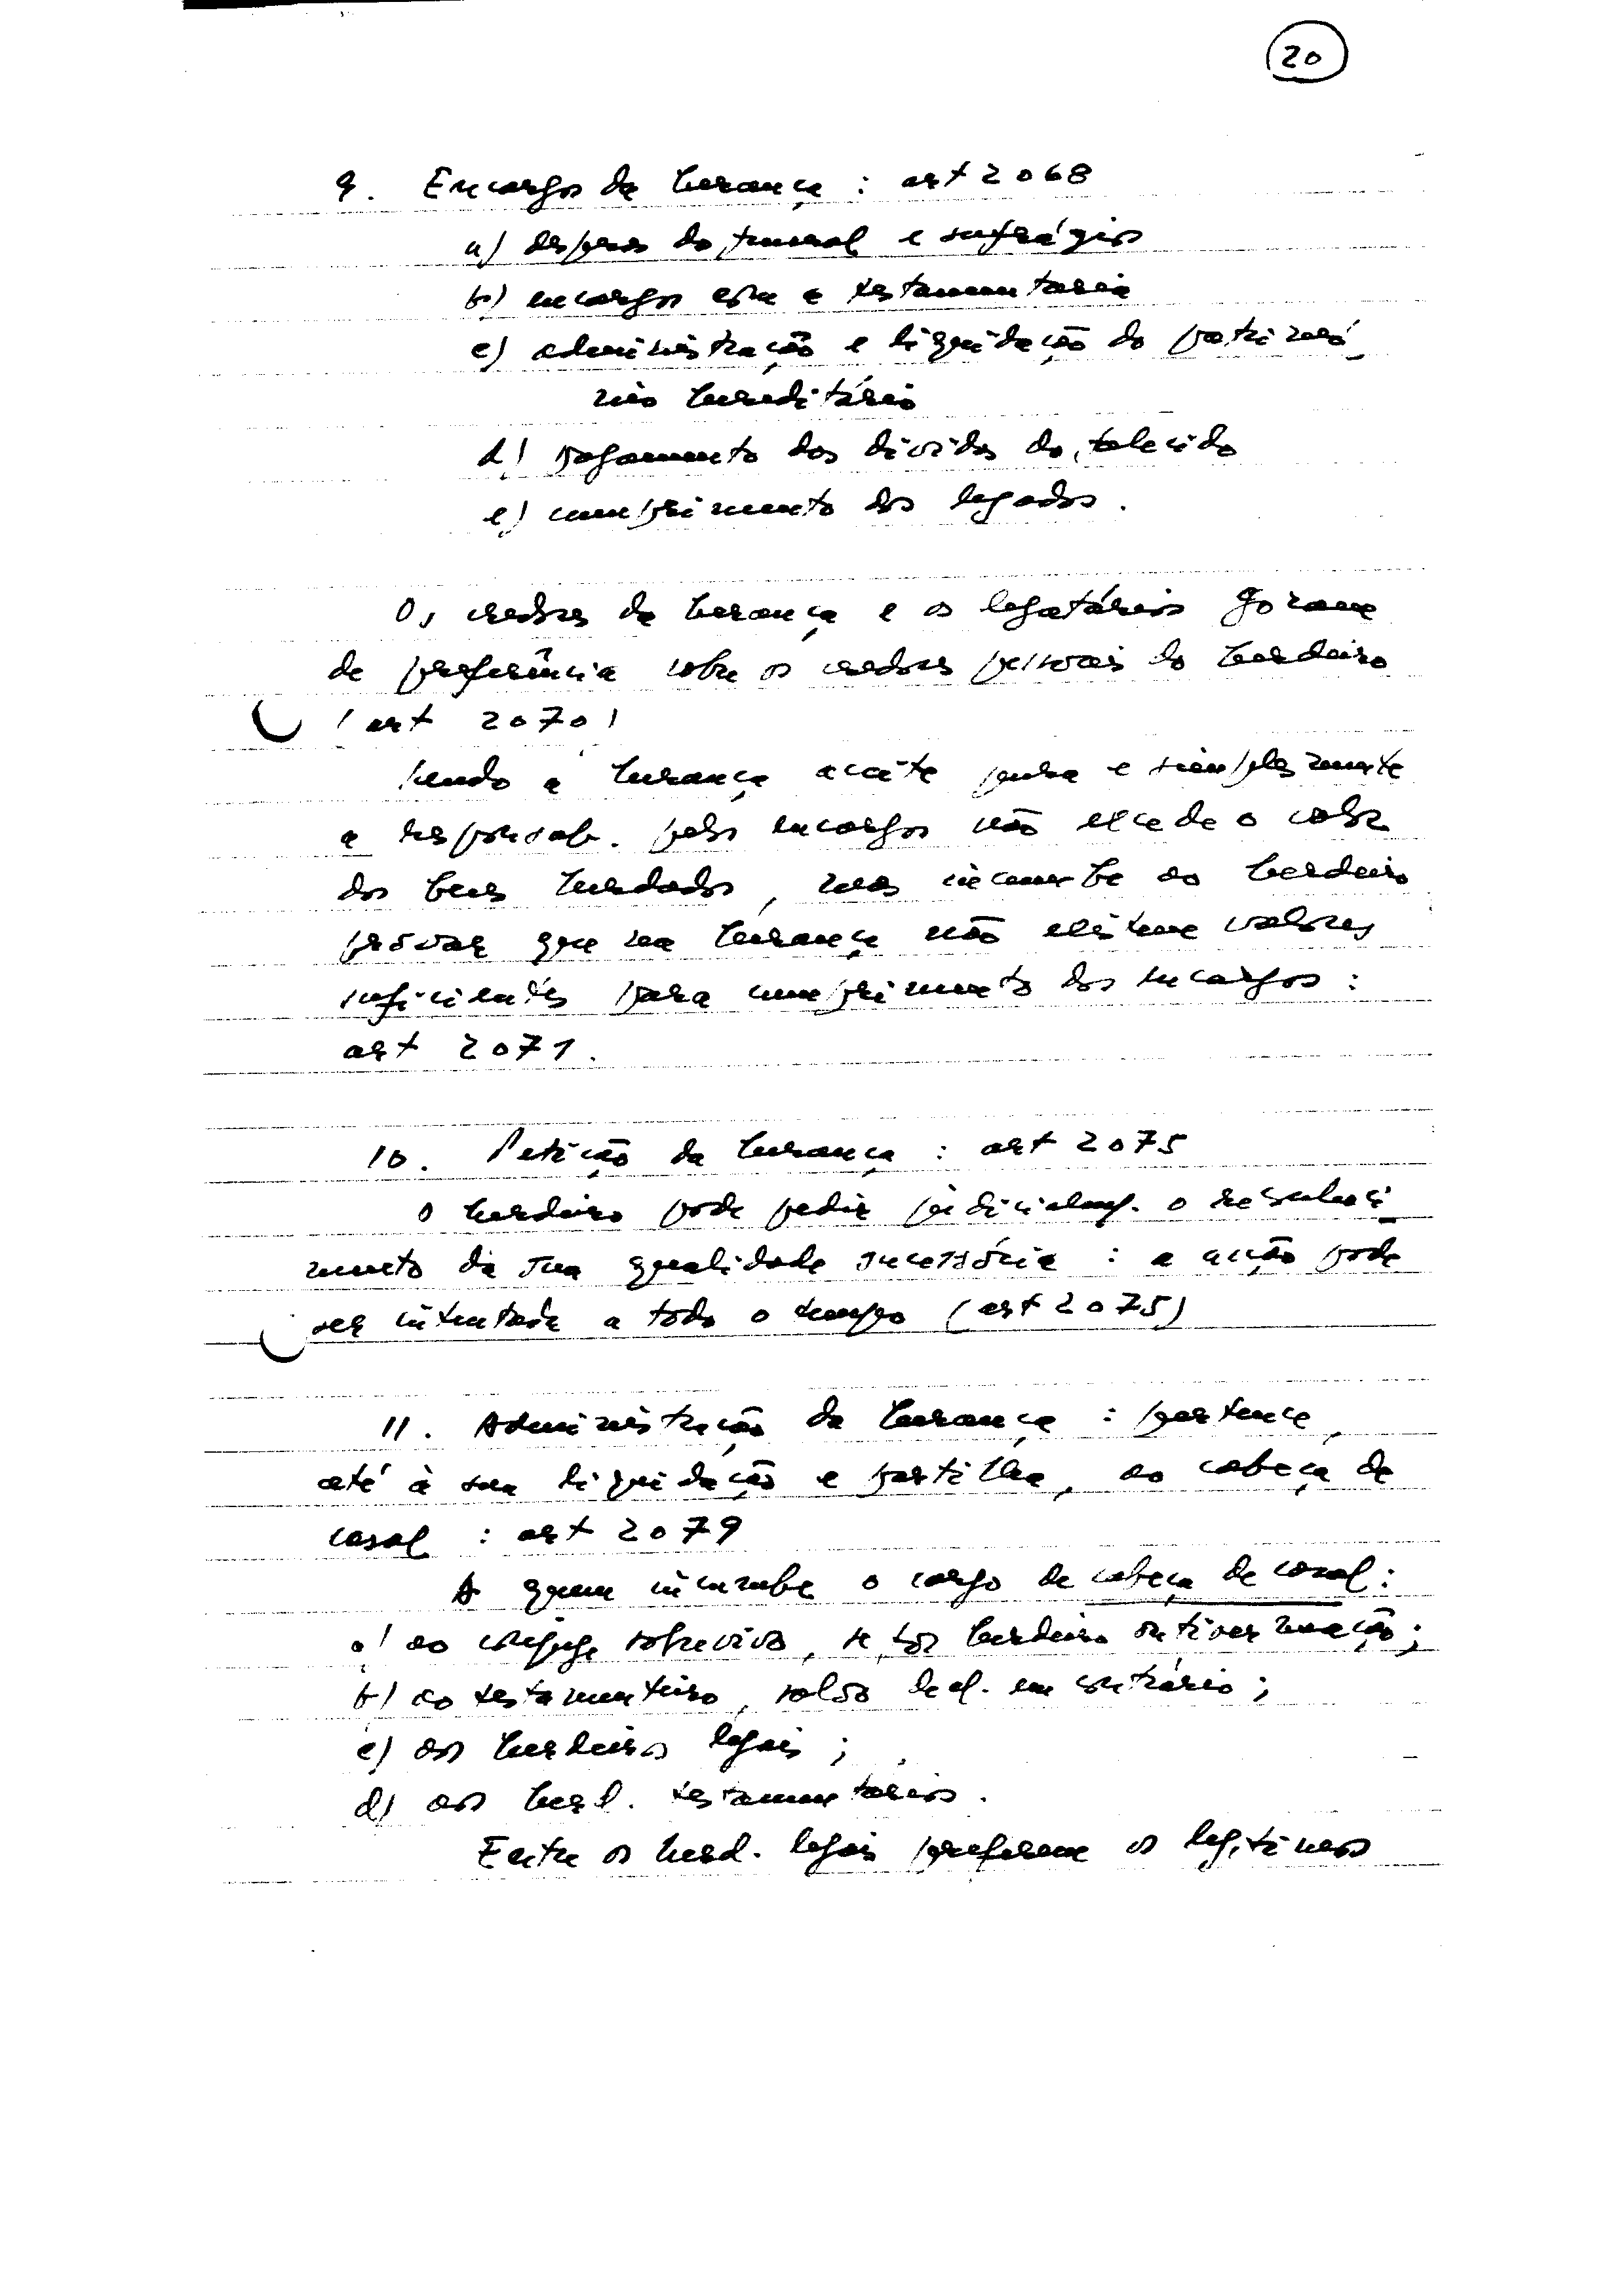 20
9. Encargos da herança : art 2068
a) despesas do funeral e sufrágios
b) encargos com a testamentaria
c) administração e liquidação do patrimó_
nio hereditário
d) pagamento das dívidas do falecido
e) cumprimento dos legados.
Os credores da herança e os legatários gozam
de preferência sobre os credores pessoais do herdeiro
(art 2070)
Sendo a herança aceite pura e simplesmente
a responsab. pelos encargos não excede o valor
dos bens herdados, mas incumbe ao herdeiro
provar que na herança não existem valores
suficientes para cumprimento dos encargos :
art 2071.
10. Petição da herança : art 2075
O herdeiro pode pedir judicialmt. o reconheci_
mento da sua qualidade sucessória : a acção pode
ser intentada a todo o tempo (art 2075)
11. Administração da herança : pertence,
até à sua liquidação e partilha, ao cabeça de
casal : art 2079
A quem incumbe o cargo de cabeça de casal :
a) ao cônjuge sobrevivo, se for herdeiro ou tiver meação ;
b) ao testamenteiro, salvo decl. em contrário ;
c) aos herdeiros legais ;
d) aos herd. testamentários.
Entre os herd. legais preferem os legítimos